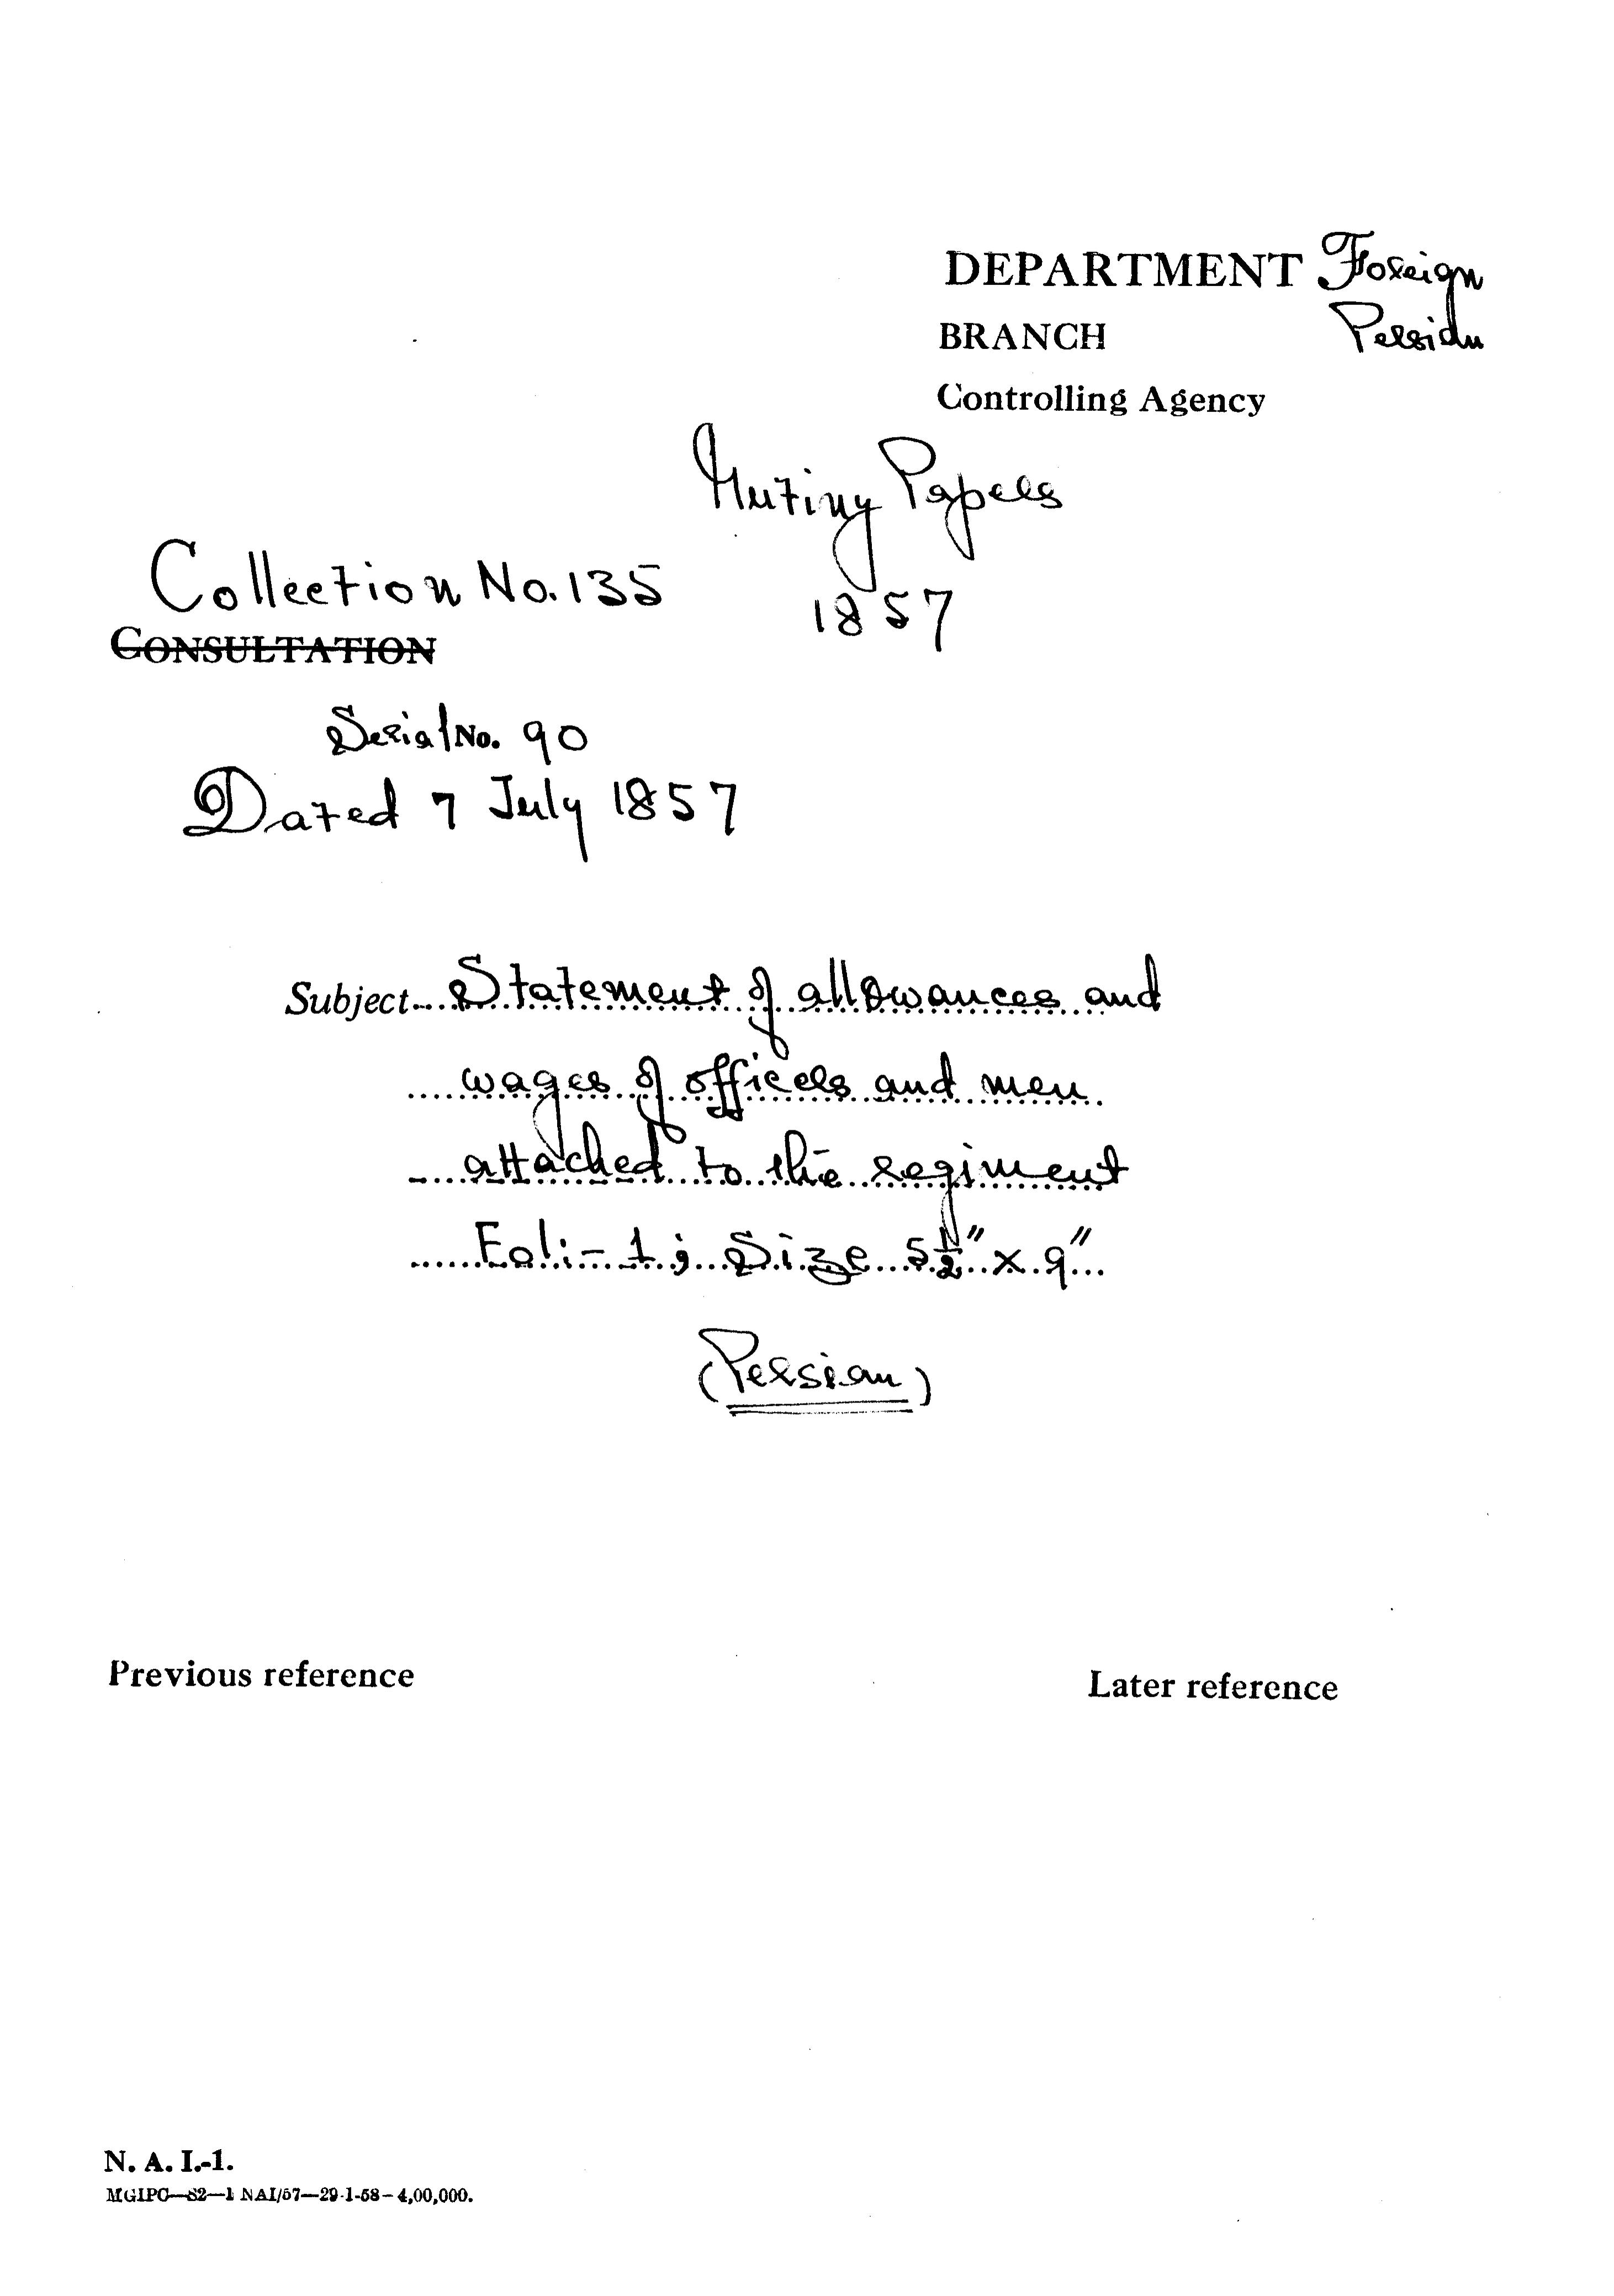 DEPARTMENT Foreign
BRANCH Persian
Controlling Agency
Mutiny Papers
1857
Collection No. 135
CONSULTATION
Serial No. 90
Dated 7 July 1857
Subject Statement of allowances and
wages of officers and men
attached to the regiment
Fol:- 1; Size 5½" x 9"
(Persian)
Previous reference
Later reference
N. A. I.-1.
MGIPC—S2—1 NAI/57—29-1-58—4,00,000.